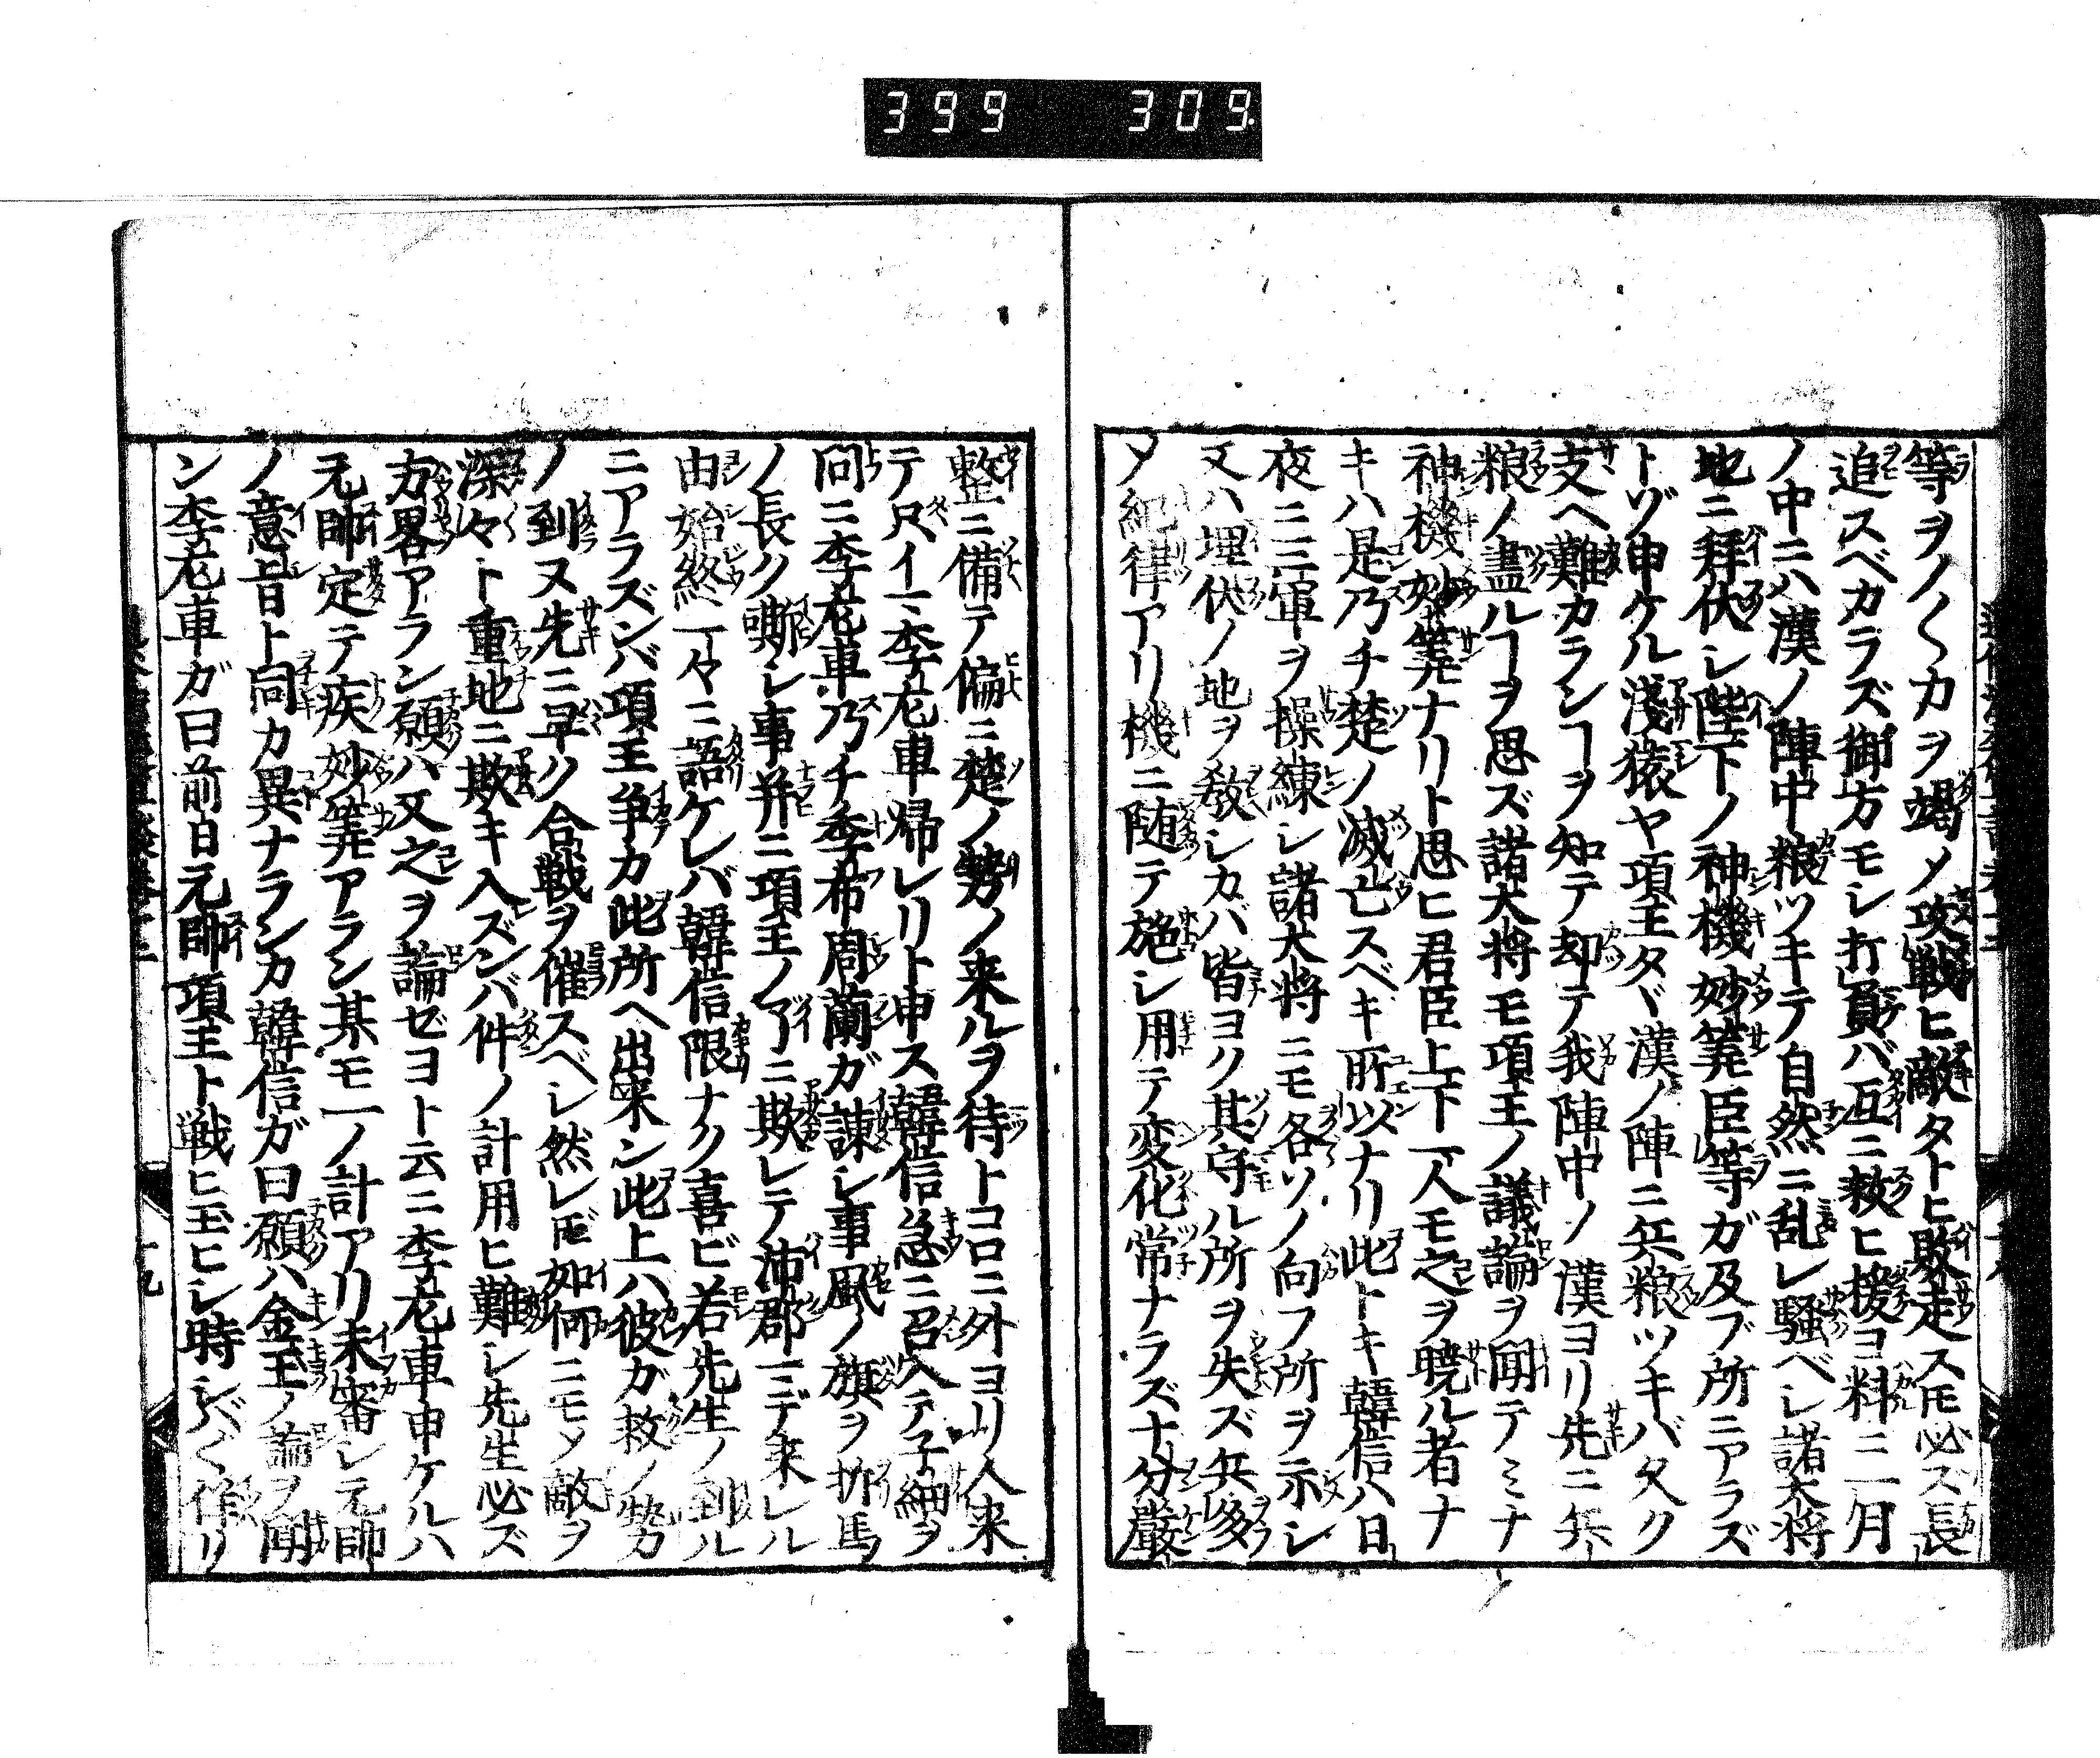 399 309.
等ヲノ〳〵力ヲ竭メ攻戦ヒ敵タトヒ敗走スㇳモ必ス長
追スベカラズ御方モシ打負バ互ニ救ヒ援ヨ料ニ一月
ノ中ニハ漢ノ陣中粮ツキテ自然ニ乱レ騒ベシ諸大将
地ニ拜伏シ陛下ノ神機妙筭臣等ガ及ブ所ニアラズ
トゾ申ケル淺猿ヤ項王タヾ漢ノ陣ニ兵粮ツキバ久ク
支ヘ難カランヿヲ知テ却テ我陣中ノ漢ヨリ先ニ兵
粮ノ盡ルヿヲ思ズ諸大将モ項王ノ議論ヲ聞テミナ
神機妙筭ナリト思ヒ君臣上下一人モ之ヲ曉ル者ナ
キハ是乃チ楚ノ滅亡スベキ所以ナリ此トキ韓信ハ日
夜ニ三軍ヲ操練シ諸大将ニモ各ソノ向フ所ヲ示シ
又ハ埋伏ノ地ヲ教シカバ皆ヨク其守ル所ヲ失ズ兵多
メ紀律アリ機ニ随テ施シ用テ変化常ナラズ十分嚴
整ニ備テ偏ニ楚ノ勢ノ来ルヲ待トコロニ外ヨリ人来
テ只今李左車帰レリト申ス韓信急ニ召入テ子細ヲ
問ニ李左車乃チ季布周蘭ガ諫シ事風ノ旗ヲ折馬
ノ長ク嘶シ事并ニ項王ノ了ニ欺レテ沛郡ニマデ来レル
由始終一々ニ語ケレバ韓信限ナク喜ビ若先生ノ到ル
ニアラズンバ項王争カ此所ヘ出来ン此上ハ彼ガ救ノ勢
ノ到ヌ先ニ早ク合戦ヲ催スベシ然レㇳモ如何ニモメ敵ヲ
深々ト重地ニ欺キ入ズンバ件ノ計用ヒ難シ先生必ズ
方畧アラン願ハ又之ヲ論ゼヨト云ニ李左車申ケルハ
元帥定テ疾妙筭アラン某モ一ノ計アリ未審シ元帥
ノ意旨ト同カ異ナランカ韓信ガ曰願ハ金玉ノ論ヲ聞
ン李左車ガ曰前日元帥項王ト戦ヒ玉ヒシ時シバ〳〵作リ